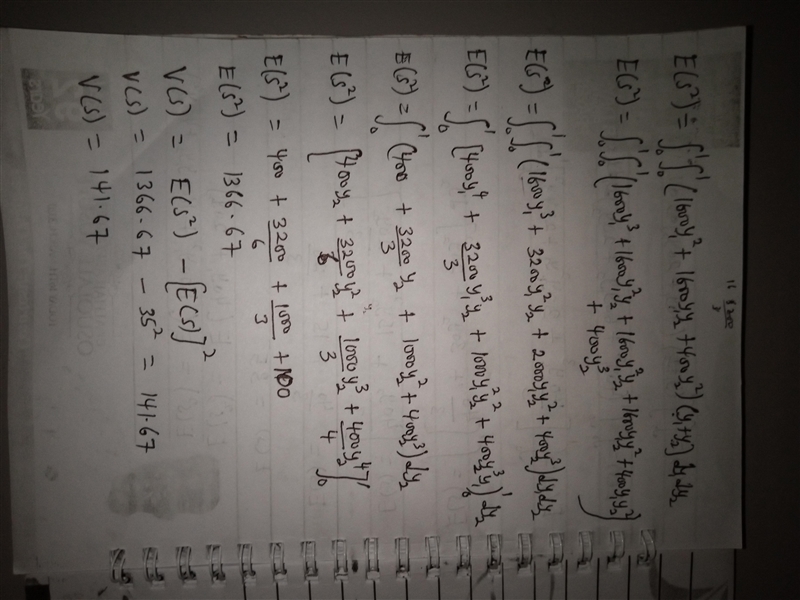 16 3200
3
E(s²) = ∫₀¹∫₀¹ (1600y₁² + 1600y₁y₂ + 400y₂²)(y₁+y₂) dy₁dy₂
E(s²) = ∫₀¹∫₀¹ (1600y₁³ + 1600y₁²y₂ + 1600y₁²y₂ + 1600y₁y₂² + 400y₁y₂²
+ 400y₂³)
E(s²) = ∫₀¹∫₀¹ (1600y₁³ + 3200y₁²y₂ + 2000y₁y₂² + 400y₂³) dy₁dy₂
E(s²) = ∫₀¹ [400y₁⁴ + 3200/3 y₁³y₂ + 1000y₁²y₂² + 400y₂³y₁]₀¹ dy₂
E(s²) = ∫₀¹ (400 + 3200/3 y₂ + 1000y₂² + 400y₂³) dy₂
E(s²) = [400y₂ + 3200y₂²/6 + 1000y₂³/3 + 400y₂⁴/4]₀¹
E(s²) = 400 + 3200/6 + 1000/3 + 100
E(s²) = 1366.67
V(s) = E(s²) - [E(s)]²
V(s) = 1366.67 - 35² = 141.67
V(s) = 141.67